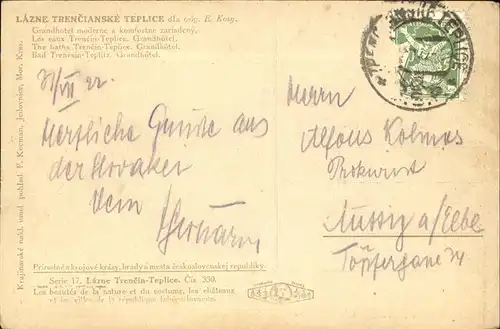 LÁZNE TRENČIANSKÉ TEPLICE dla orig. E. Kosy.
Grandhotel moderne a komfostne zariadený.
Les eaux Trenčín-Teplice. Grandhôtel.
The baths Trenčin-Teplice. Grandhôtel.
Bad Trencsín-Teplic. Grandhôtel.
TEPLICE
31/VII 22.
Herrn
Herzliche Grüsse aus
der Slovakei
Dein
Alfons Kolmas
Prokurist
Aussig a/Elbe
Töpfergasse 14
Prírodné a krojové krásy, hrady a mesta československej republiky.
Serie 17. Lázne Trenčín-Teplice. Čis. 330.
Les beautés de la nature et du costume, les châteaux
et les villes de la république tchécoslovaque.